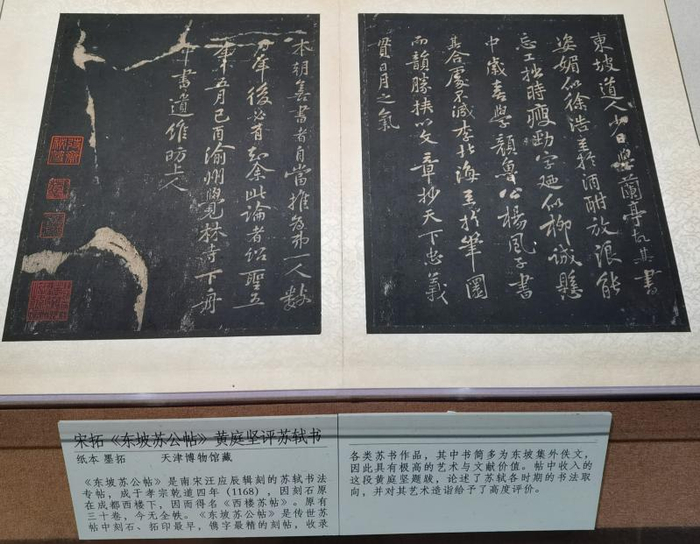 東坡道人少日學蘭亭故其書
姿媚似徐浩至於酒酣放浪能
忘工拙時瘦勁字迺似柳誠懸
中歲喜學顏魯公楊風子書
其合處不減李北海至於筆圜
而韻勝挾以文章妙天下忠義
貫日月之氣
本朝善書者自當推為第一人數
百年後必有知余此論者紹聖五
年五月己酉渝州覺林寺下舟
中書遺作昉上人
宋拓《东坡苏公帖》黄庭坚评苏轼书
纸本 墨拓 天津博物馆藏
《东坡苏公帖》是南宋汪应辰辑刻的苏轼书法
专帖，成于孝宗乾道四年（1168），因刻石原
在成都西楼下，因而得名《西楼苏帖》。原有
三十卷，今无全帙。《东坡苏公帖》是传世苏
帖中刻石、拓印最早，镌字最精的刻帖，收录
各类苏书作品，其中书简多为东坡集外佚文，
因此具有极高的艺术与文献价值。帖中收入的
这段黄庭坚题跋，论述了苏轼各时期的书法取
向，并对其艺术造诣给予了高度评价。